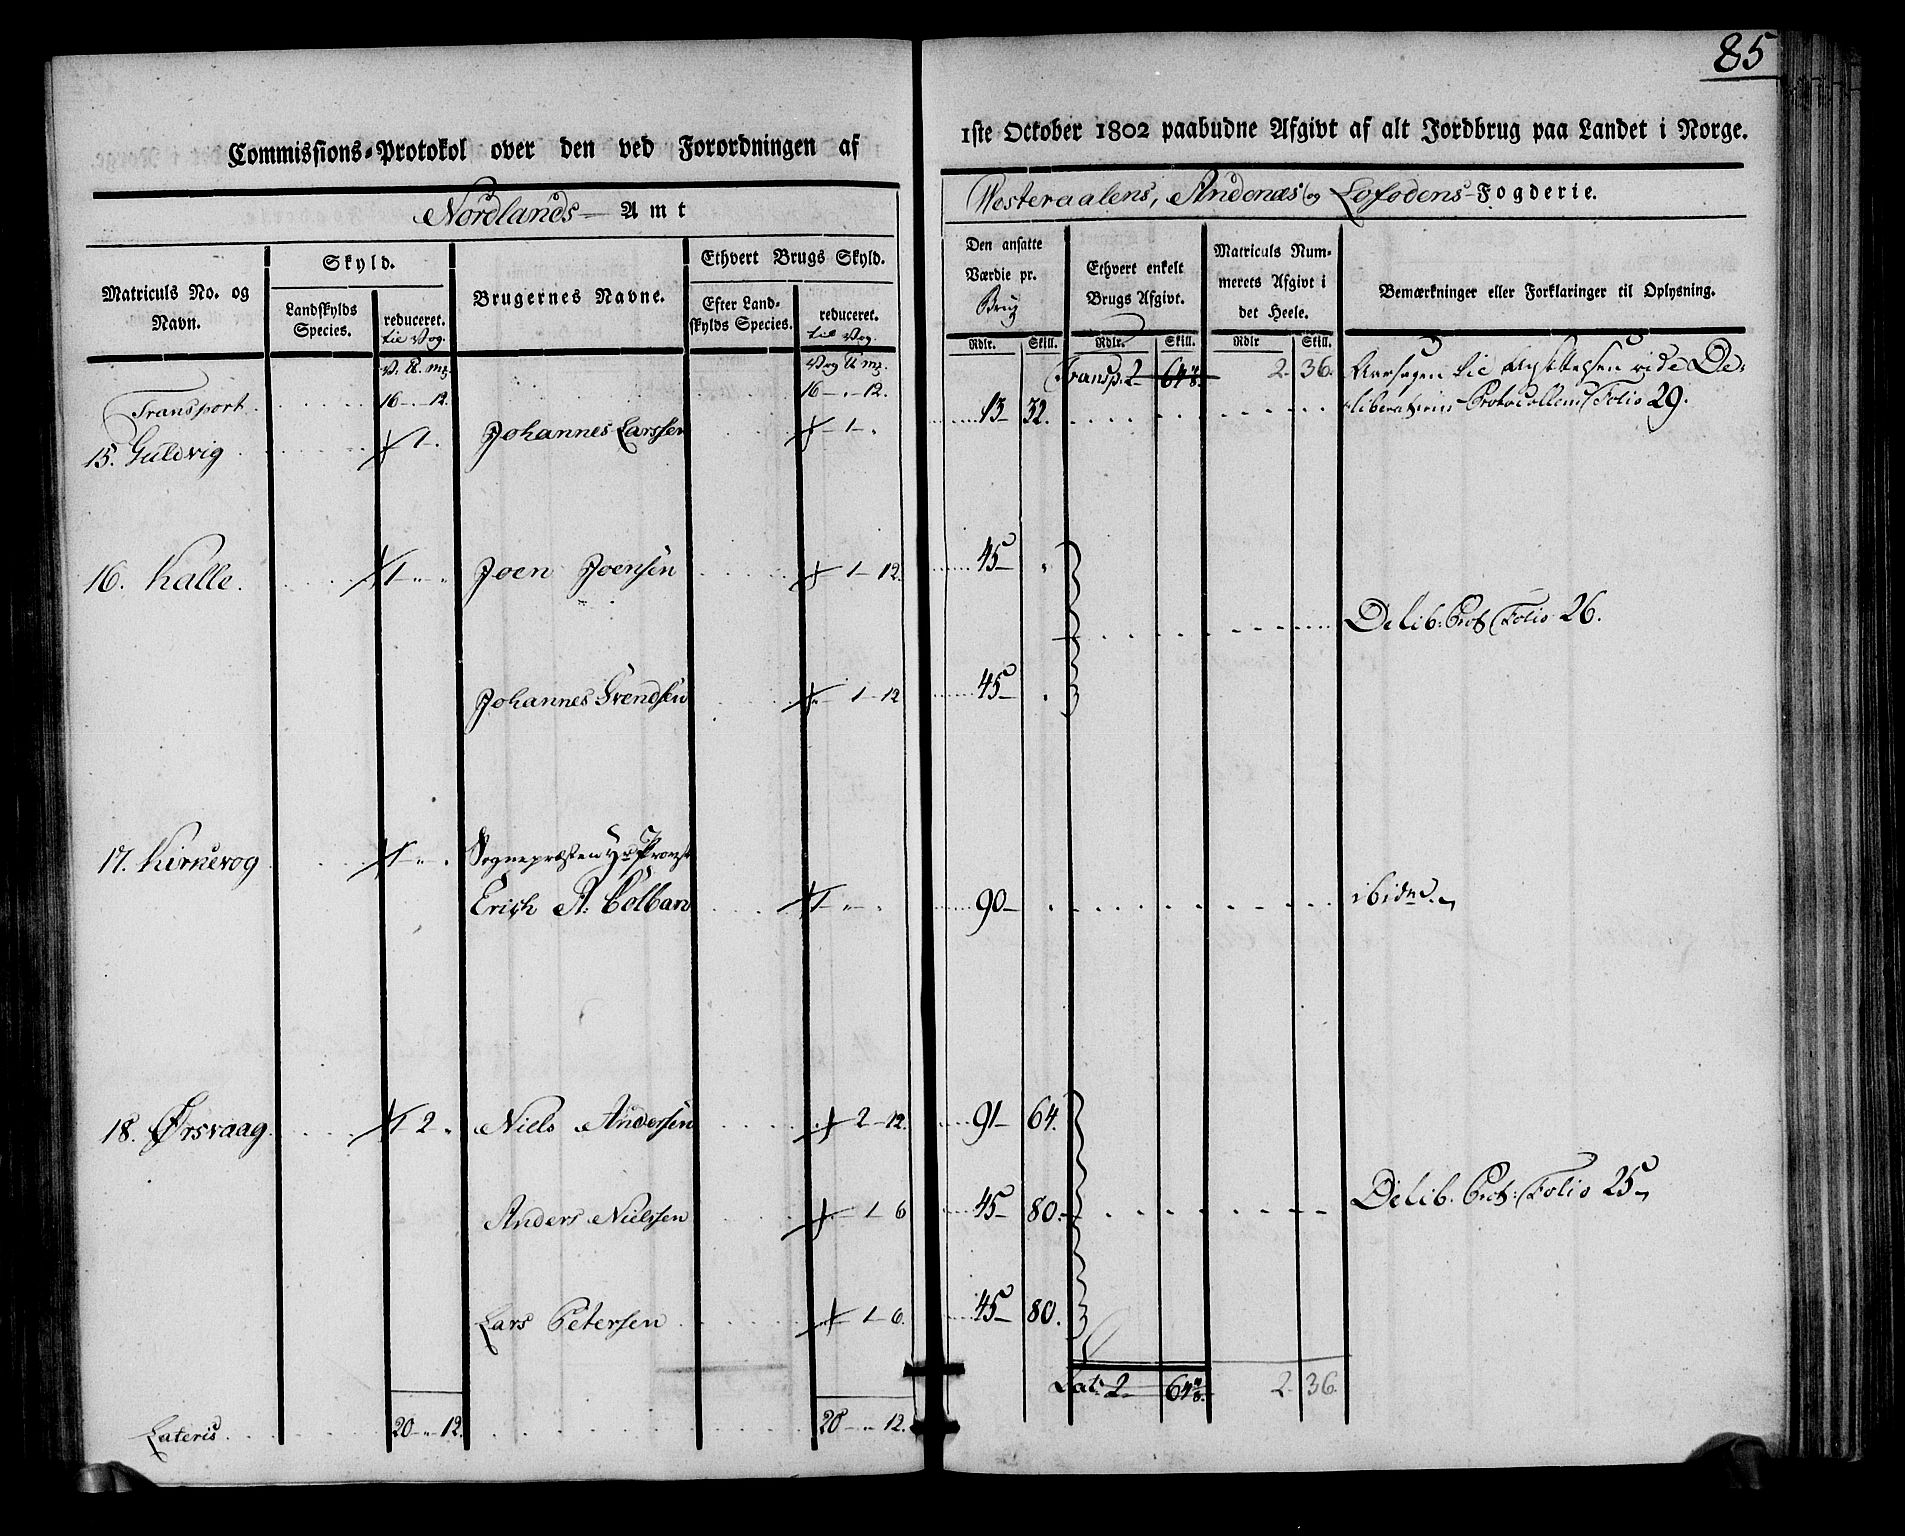 85
Commissions-Protokol over den ved Forordningen af
1ste October 1802 paabudne Afgivt af alt Jordbrug paa Landet i Norge.
Nordlands Amt
Westeraalens, Andenæs og Lofodens-Fogderie.
Matriculs No. og Navn.
Skyld.
Landskylds Species.
reduceret. til Vog.
Brugernes Navne.
Ethvert Brugs Skyld.
Efter Landskylds Species.
reduceret. til Vog.
Den ansatte Værdie pr. Brug
Ethvert enkelt Brugs Afgivt.
Matriculs Nummerets Afgivt i det Heele.
Bemærkninger eller Forklaringer til Oplysning.
Rdlr. Skill. Rdlr. Skill. Rdlr Skill.
Transport 16 - 12. 16 - 12. Transp. 2 64 2. 36.
15. Guldvig 1. Johannes Larssen 1 13 32. Aarsagen til
liberations Protocollen Folio 29.
16. Kalle. 1 Joen Joensen 1 - 12. 45
Delib: Prot Folio 26.
Johannes Svendsen 1 - 12 45
17. Kirkevog 1 Sognepræsten Hr Provst
Erich A: Colban 1 90 ibidm.
18. Ørsvaag 1 2 Niels Andersen 2 - 12. 91 64.
Anders Nielssen 1 - 6 45 80. Delib. Prot: Folio 25
Lars Petersen 1 - 6. 45 80.
Lat: 2 64 2. 36.
Lateris 20 - 12. 20 - 12.